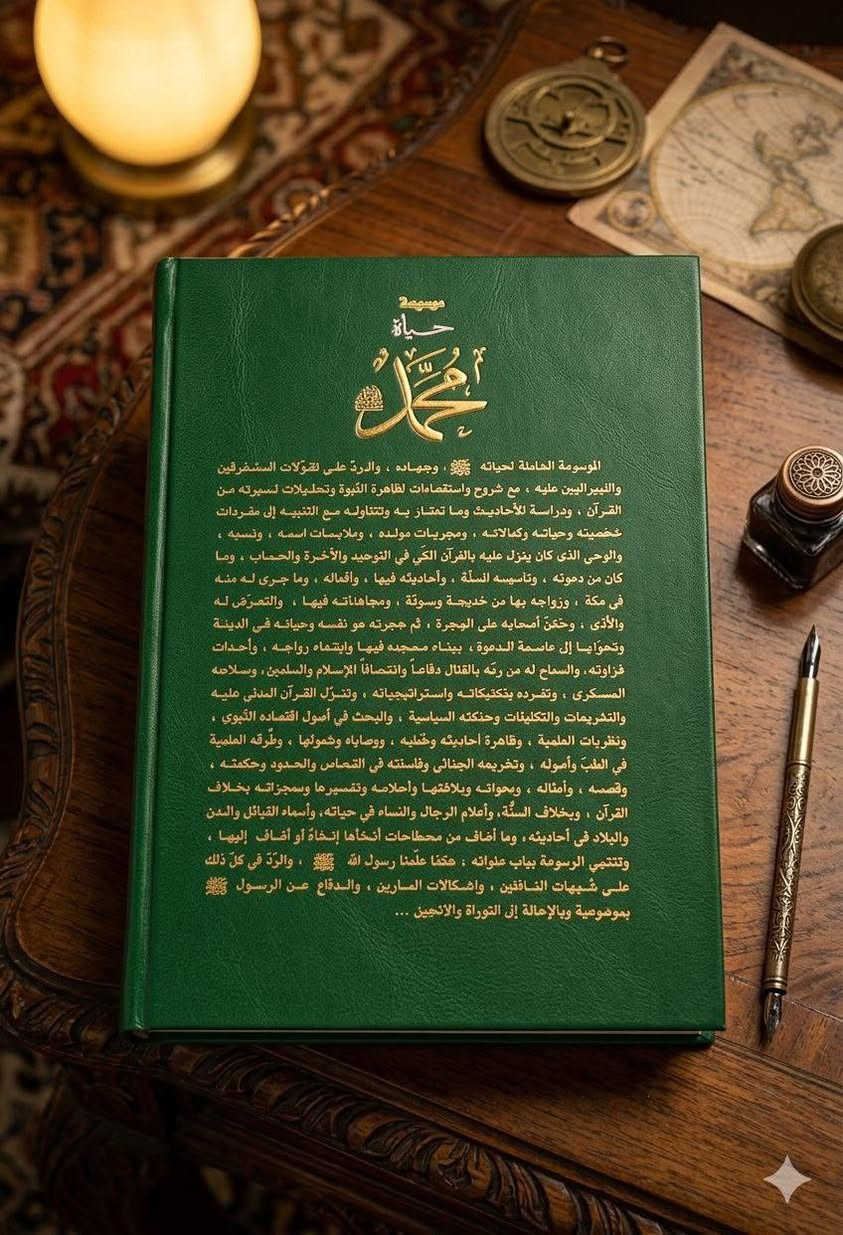 موسوعة
حياة
مُحمَّد ﷺ
الموسومة الهاملة لحياته ﷺ ، وجهاده ، والردّ على تقوّلات المستشرقين
والنيبراليين عليه ، مع شروح واستقصاءات لظاهرة النّبوة وتحليلات لسيرته من
القرآن ، ودراسة للأحاديث وما تمتاز به وتتناوله مع التنبيه إلى مفردات
شخصيته وحياته وكمالاته ، ومجريات مولده ، وملابسات اسمه ، ونسبه ،
والوحى الذى كان ينزل عليه بالقرآن الكّي في التوحيد والآخرة والحساب ، وما
كان من دعوته ، وتأسيسه السنّة ، وأحاديثه فيها ، وأفعاله ، وما جرى له منه
فى مكة ، وزواجه بها من خديجة وسودّة ، ومجاهداته فيها ، والتعرّض له
والأذى ، وحضّ أصحابه على الهجرة ، ثم هجرته هو نفسه وحياته فى الدينة
وتحوّلها إلى عاصمة الدعوة ، ببناء مسجده فيها وابتناء رواجه ، وأحداث
غزاوته، والسماح له من ربّه بالقتال دفاعاً وانتصافاً للإسلام والسلمين، وسلامه
العسكرى ، وتفرده بتكتيكاته واستراتيجياته ، وتنزّل القرآن المدنى عليه
والتشريعات والتكليفات وحنكته السياسية ، والبحث في أصول اقتصاده النّبوي ،
ونظريات العلمية ، وظاهرة أحاديثه وخطبه ، ووصاياه وشمولها ، وطُرقه العلمية
في الطبّ وأصوله ، وتجريمه الجنائى وفلسنته فى القصاص والحدود وحكمته ،
وقصصه ، وأمثاله ، وبحوثاته وبلاغتها وأحلامه وتفسيرها وسمجزاته بخلاف
القرآن ، وبخلاف السنُّة، وأعلام الرجال والنساء في حياته، وأسماء القبائل والدن
والبلاد فى أحاديثه، وما أضاف من مصطلحات أنخأها إنخاءً أو أضاف إليها ،
وتنتهي الرسومة بباب علواته : هكذا علّمنا رسول الله ﷺ ، والردّ في كلّ ذلك
على شُبهات الناقدين ، واشكالات المارين ، والدفاع عن الرسول ﷺ
بموضوصية وبالإحالة إلى التوراة والانجين ...